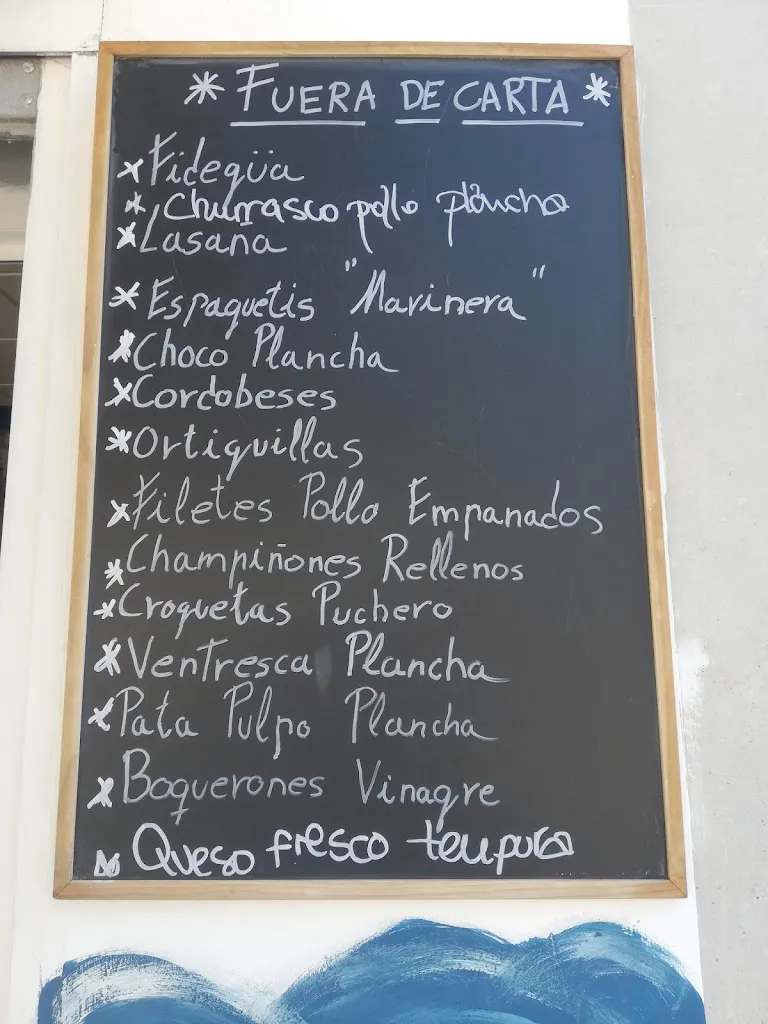 * FUERA DE CARTA *
* Fidegüa
* Churrasco pollo plancha
* Lasaña
* Espaguetis "Marinera"
* Choco Plancha
* Cordobeses
* Ortiguillas
* Filetes Pollo Empanados
* Champiñones Rellenos
* Croquetas Puchero
* Ventresca Plancha
* Pata Pulpo Plancha
* Boquerones Vinagre
* Queso fresco tempura